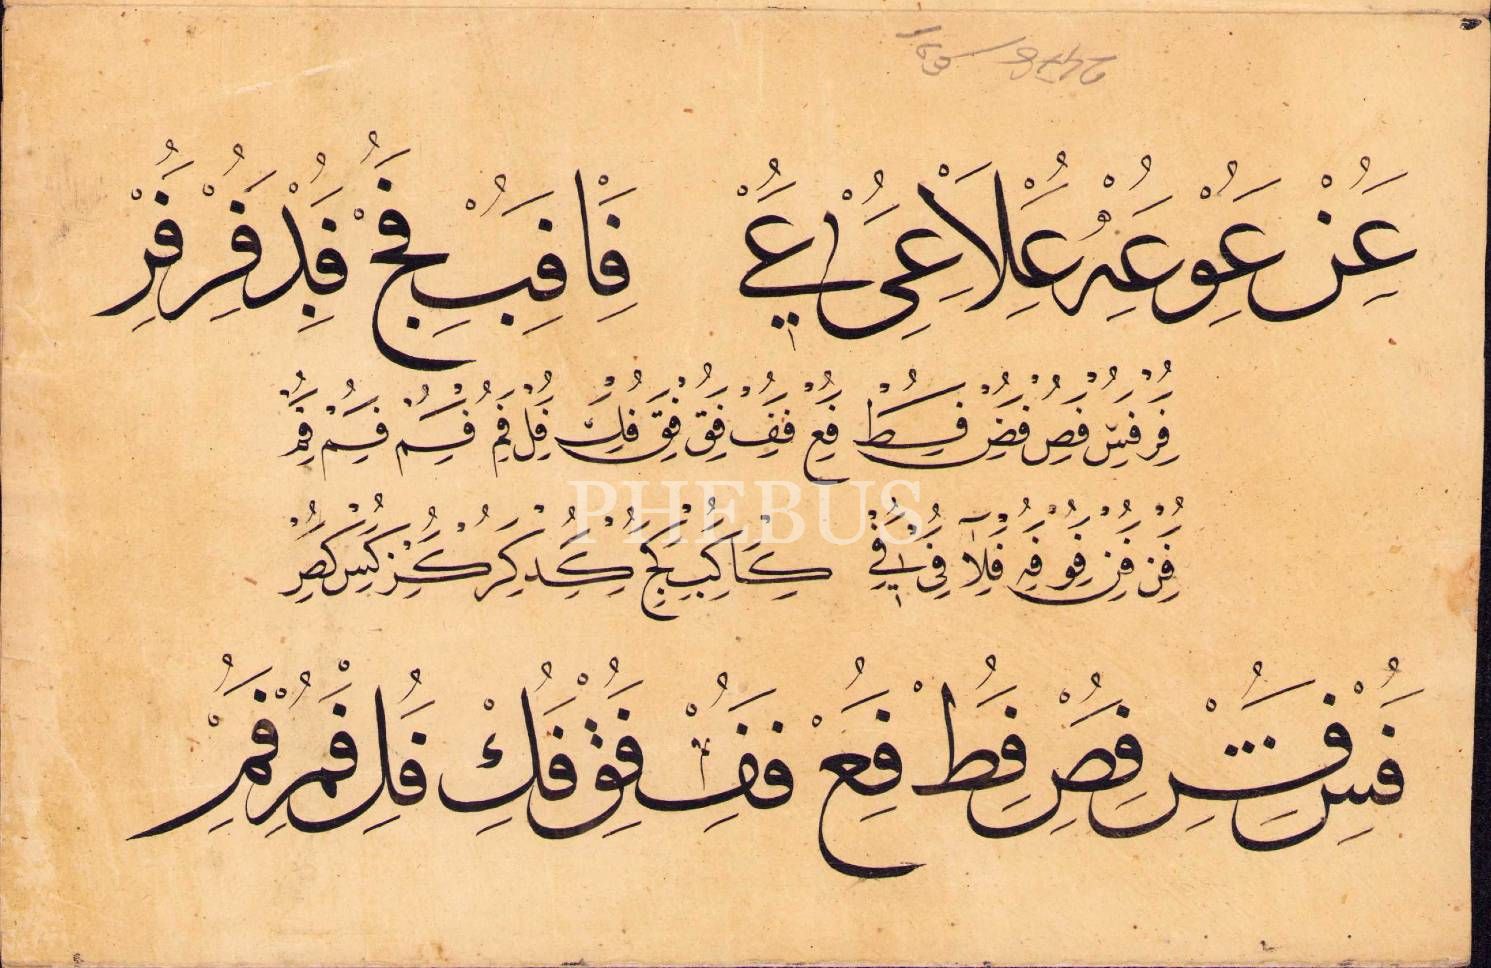 عن عو عه علا عى عے فا فب فج فد فر فر
فر فس فص فض فط فع فف فق فق فك فل فم فم فم فم
فن فن فو فه فلا فى فے كا كب كج كد كر كز كس كص
فس فس فص فط فع فف فق فك فل فم فم
PHEBUS